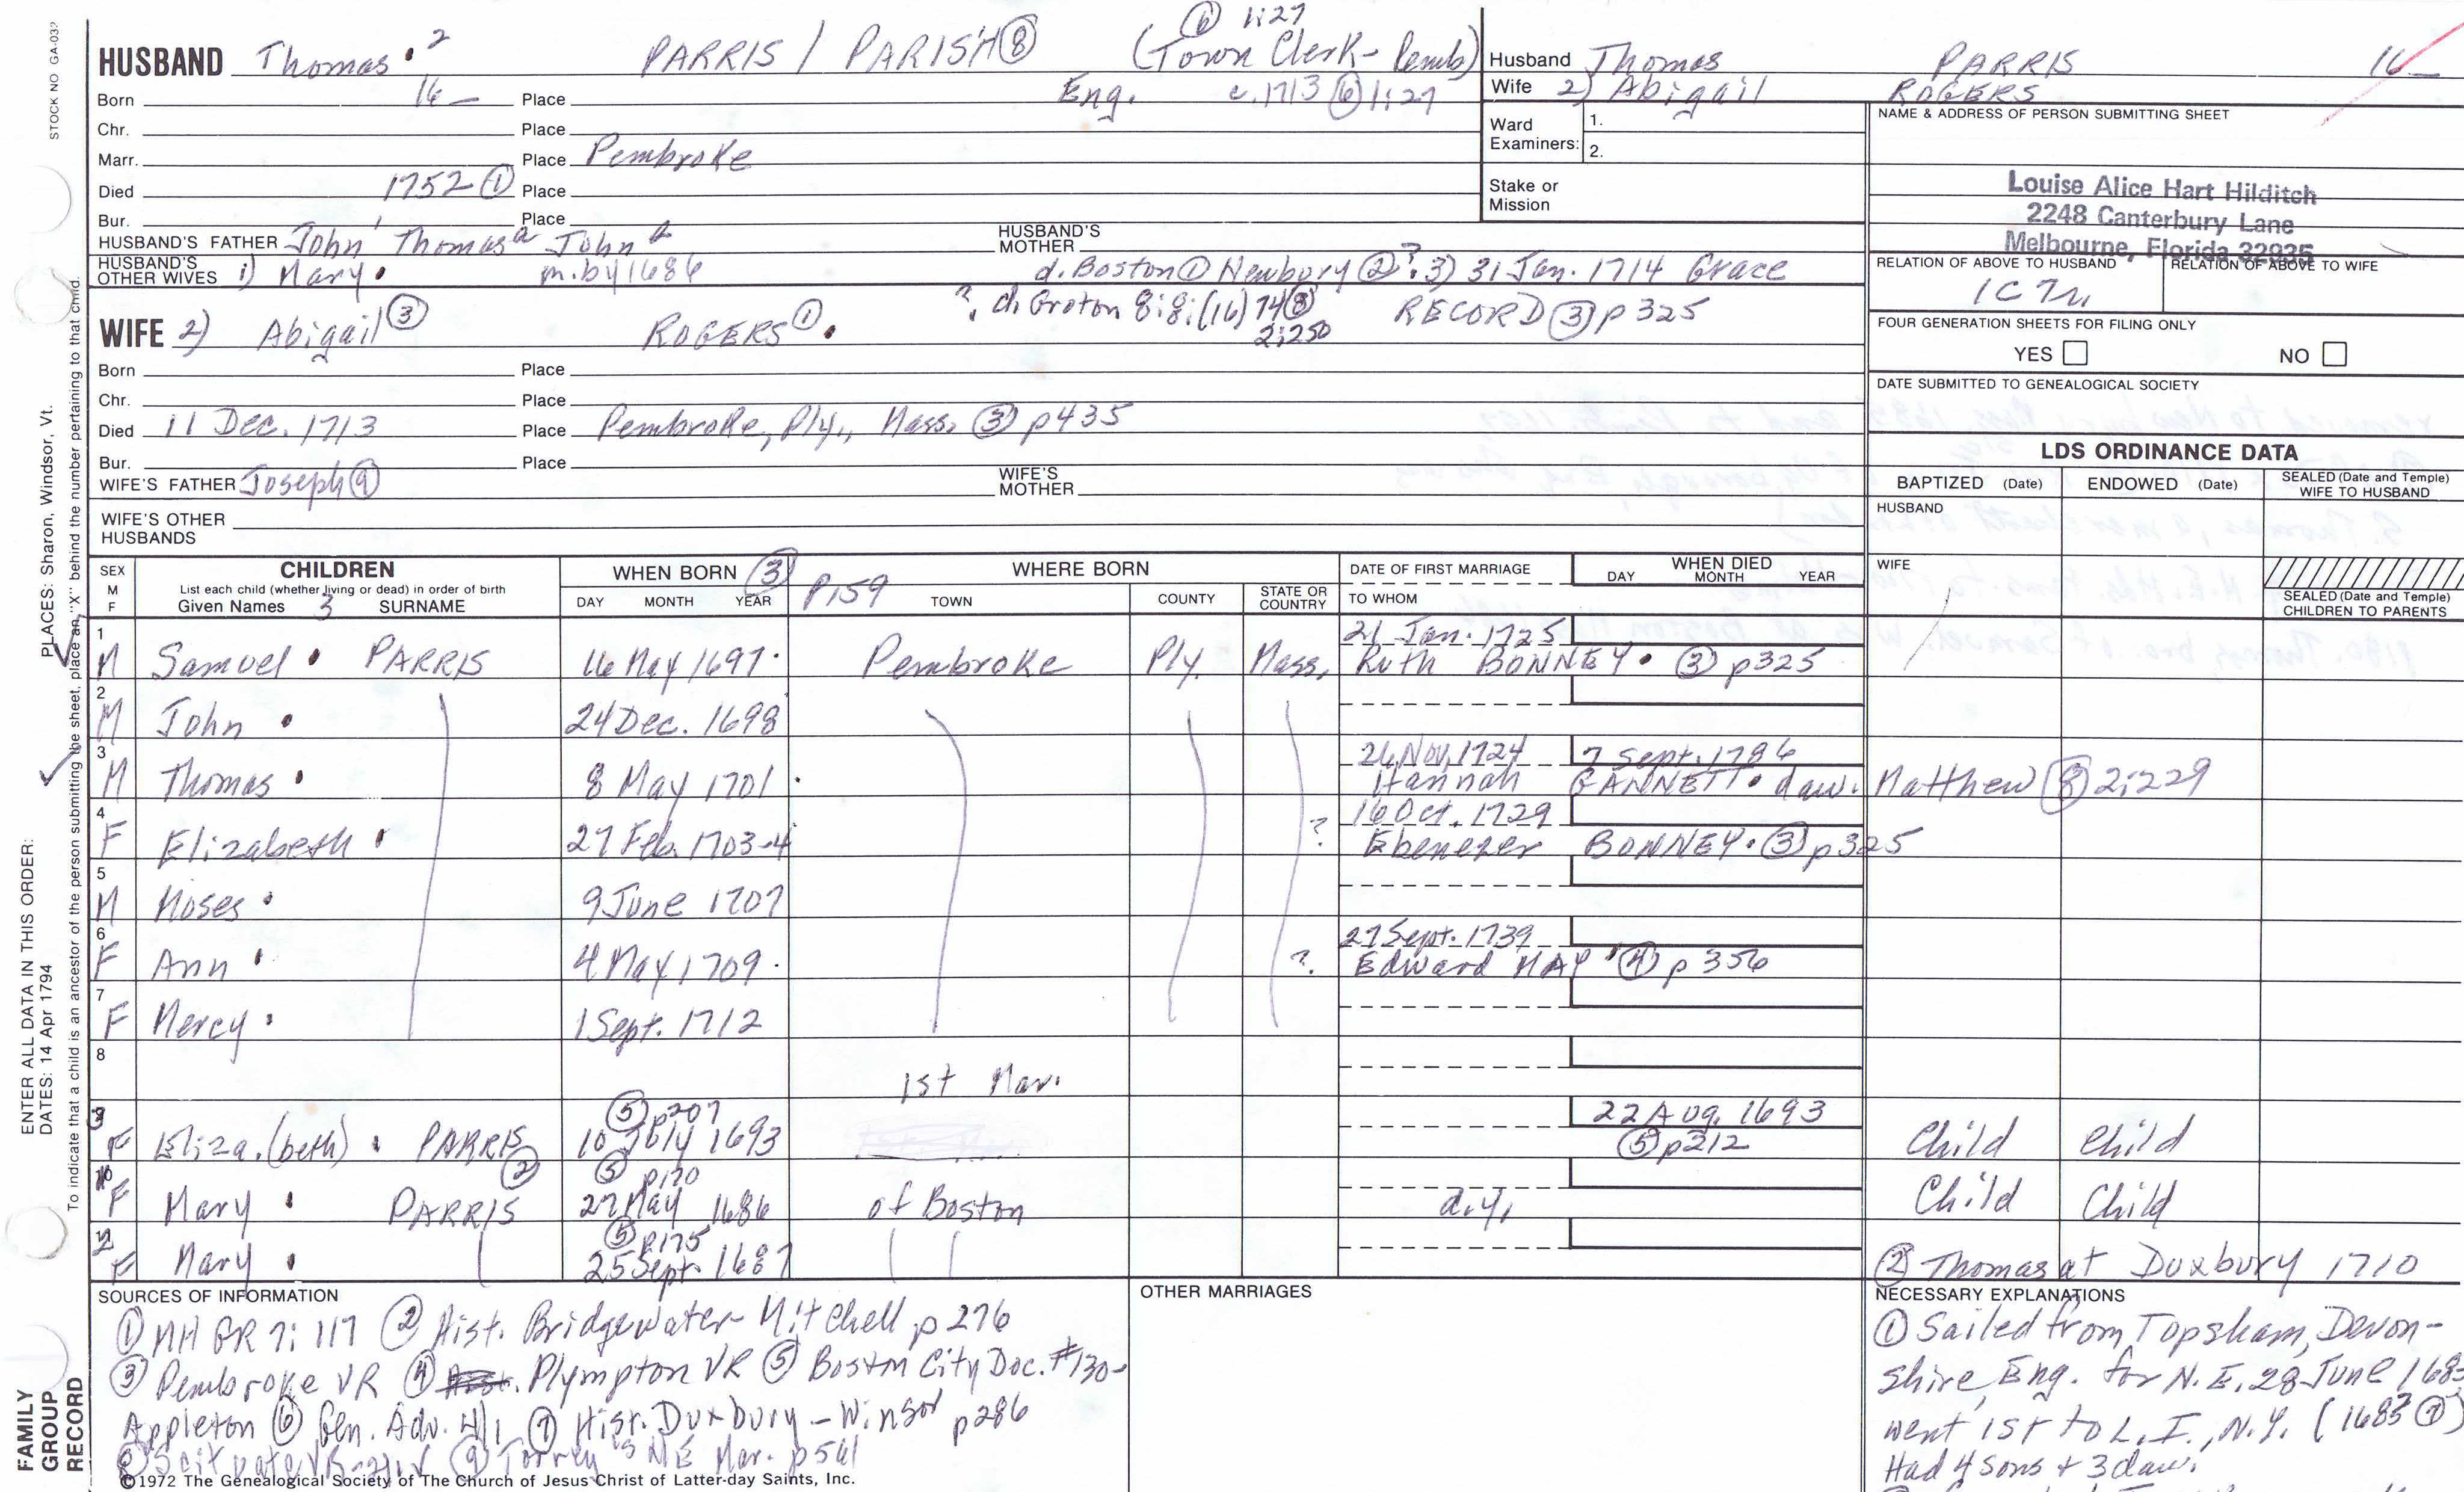 STOCK NO GA-032
HUSBAND Thomas 2 PARRIS / PARISH ⑧ (Town Clerk - Pemb) ⑥ 1:27
Born 16— Place Eng. c.1713 ⑥ 1:27
Chr. Place
Marr. Place Pembroke
Died 1752 ① Place
Bur. Place
HUSBAND'S FATHER John Thomas John
HUSBAND'S MOTHER
HUSBAND'S OTHER WIVES 1) Mary m. by 1686 d. Boston ① Newbury ②? 3) 31 Jan. 1714 Grace
? d. Groton 8:8:(16)74 ⑧ RECORD ③ p325
2:250
WIFE 2) Abigail ③ ROGERS ①
Born Place
Chr. Place
Died 11 Dec. 1713 Place Pembroke, Ply., Mass. ③ p435
Bur. Place
WIFE'S FATHER Joseph ⑨
WIFE'S MOTHER
WIFE'S OTHER HUSBANDS
Husband Thomas PARRIS 16—
Wife 2) Abigail ROGERS
Ward Examiners: 1.
2.
Stake or Mission
NAME & ADDRESS OF PERSON SUBMITTING SHEET
Louise Alice Hart Hilditch
2248 Canterbury Lane
Melbourne, Florida 32935
RELATION OF ABOVE TO HUSBAND RELATION OF ABOVE TO WIFE
FOUR GENERATION SHEETS FOR FILING ONLY
YES NO
DATE SUBMITTED TO GENEALOGICAL SOCIETY
LDS ORDINANCE DATA
BAPTIZED (Date) ENDOWED (Date) SEALED (Date and Temple) WIFE TO HUSBAND
HUSBAND
WIFE
SEALED (Date and Temple) CHILDREN TO PARENTS
SEX M F
CHILDREN
List each child (whether living or dead) in order of birth
Given Names 3 SURNAME
WHEN BORN ③ p159
DAY MONTH YEAR
WHERE BORN
TOWN COUNTY STATE OR COUNTRY
DATE OF FIRST MARRIAGE
TO WHOM
WHEN DIED
DAY MONTH YEAR
1 M Samuel PARRIS 16 May 1697 Pembroke Ply. Mass. 21 Jan. 1725
Ruth BONNEY ③ p325
2 M John 24 Dec. 1698
3 M Thomas 8 May 1701 26 Nov. 1724 7 Sept. 1786
Hannah GANNETT daw. Matthew ⑧ 2:229
4 F Elizabeth 27 Feb. 1703-4 ? 16 Oct. 1729
Ebenezer BONNEY ③ p325
5 M Moses 9 June 1707
6 F Ann 4 May 1709 ? 27 Sept. 1739
Edward MAY ④ p 356
7 F Mercy 1 Sept. 1712
8 1st Mar.
9 F Eliza.(beth) PARRIS ⑤ p207 10 July 1693 22 Aug. 1693 ⑤ p212 Child Child
10 F Mary PARRIS ② ⑤ p170 27 May 1686 of Boston d.y. Child Child
F Mary ⑤ p175 25 Sept. 1687
② Thomas at Duxbury 1710
SOURCES OF INFORMATION
① NH GR 7:117 ② Hist. Bridgewater - Mitchell p 276
③ Pembroke VR ④ Plympton VR ⑤ Boston City Doc. #130-
Appleton ⑥ Gen. Adv. 4/1 ⑦ Hist. Duxbury - Winsor p286
⑧ Scituate VR ⑨ Torrey's NE Mar. p561
©1972 The Genealogical Society of The Church of Jesus Christ of Latter-day Saints, Inc.
OTHER MARRIAGES
NECESSARY EXPLANATIONS
① Sailed from Topsham, Devon-
shire, Eng. for N.E. 28 June 1683
went 1st to L.I., N.Y. (1683 ⑦)
Had 4 sons + 3 daw.
ENTER ALL DATA IN THIS ORDER:
DATES: 14 Apr 1794
PLACES: Sharon, Windsor, Vt.
To indicate that a child is an ancestor of the person submitting the sheet, place an "X" behind the number pertaining to that child.
FAMILY
GROUP
RECORD